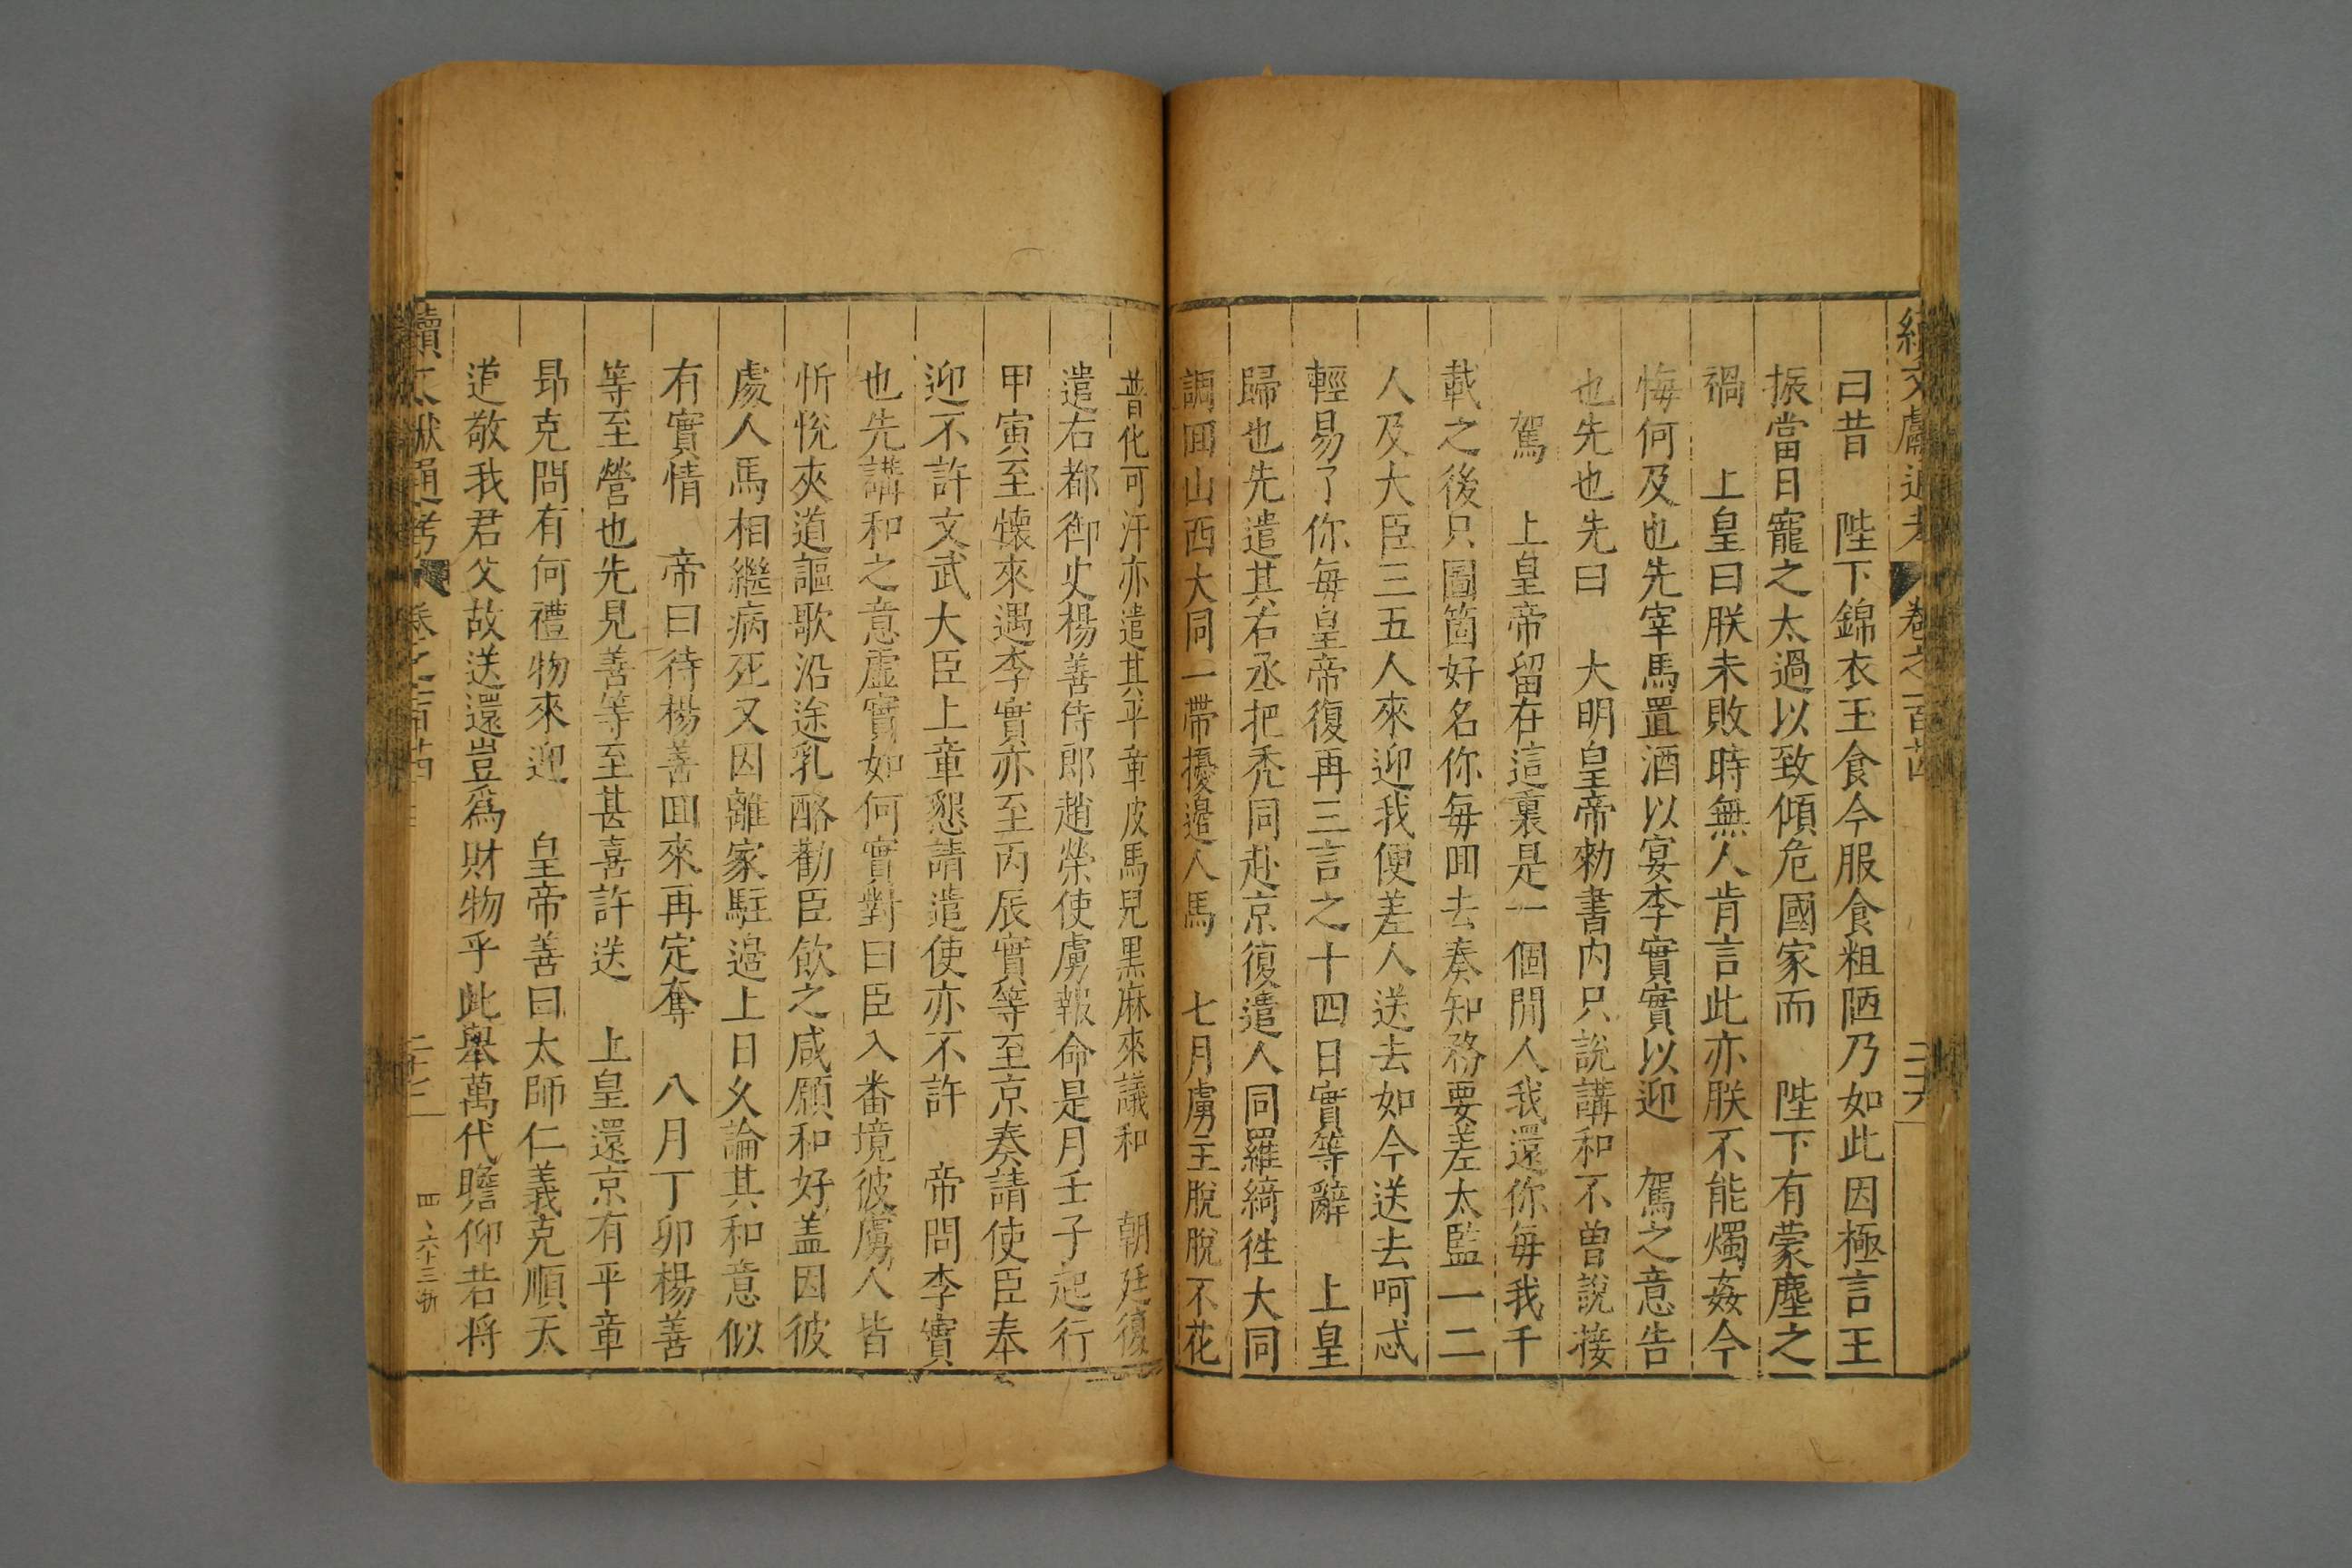 續文獻通考 卷之一百 二十六
曰昔 陛下錦衣玉食今服食粗陋乃如此因極言王
振當日寵之太過以致傾危國家而 陛下有蒙塵之
禍 上皇曰朕未敗時無人肯言此亦朕不能燭姦今
悔何及也先宰馬置酒以宴李實實以迎 駕之意告
也先也先曰 大明皇帝勑書内只說講和不曾說接
駕 上皇帝留在這裏是一個閒人我還你毎我千
載之後只圖箇好名你毎囬去奏知務要差太監一二
人及大臣三五人來迎我便差人送去如今送去呵忒
輕易了你毎皇帝復再三言之十四日實等辭 上皇
歸也先遣其右丞把禿同赴京復遣人同羅綺徃大同
調囬山西大同一帶擾邊人馬 七月虜主脫脫不花
普化可汗亦遣其平章皮馬兒黒麻來議和 朝廷復
遣右都御史楊善侍郎趙榮使虜報命是月壬子起行
甲寅至懐來遇李實亦至丙辰實等至京奏請使臣奉
迎不許文武大臣上章懇請遣使亦不許 帝問李實
也先講和之意虛實如何實對曰臣入番境彼虜人皆
忻悅夾道謳歌沿途乳酪勸臣飲之咸願和好盖因彼
處人馬相繼病死又因離家駐邊上日久論其和意似
有實情 帝曰待楊善囬來再定奪 八月丁卯楊善
等至營也先見善等至甚喜許送 上皇還京有平章
昻克問有何禮物來迎 皇帝善曰太師仁義克順天
道敬我君父故送還豈爲財物乎此舉萬代瞻仰若将
續文獻通考 卷之一百 二十七
四 六十三